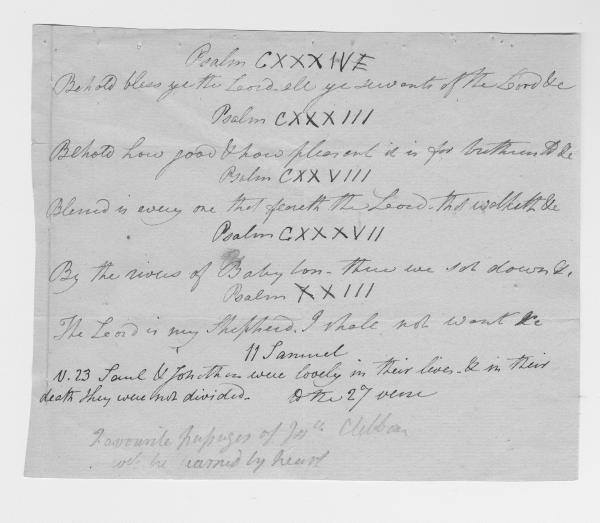 Psalm CXXXIVE
Behold bless ye the Lord all ye servants of the Lord &c
Psalm CXXXIII
Behold how good & how pleasent it is for brethren &c
Psalm CXXVIII
Blessed is every one that feareth the Lord - that walketh &c
Psalm CXXXVII
By the rivers of Babylon - there we sat down &c
Psalm XXIII
The Lord is my Shepherd. I shall not want &c
11 Samuel
v. 23 Saul & Jonathan were lovely in their lives - & in their
death they were not divided - 27 verse
Favourite passages of Josh Clibborn
he learned by heart